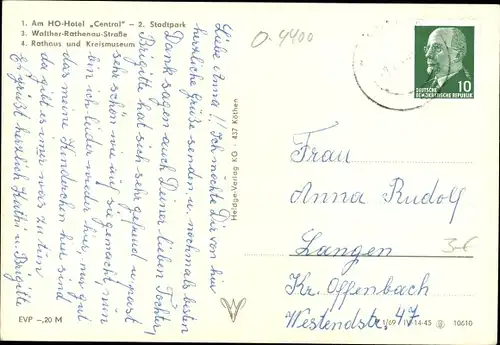 1. Am HO-Hotel „Central" – 2. Stadtpark
3. Walther-Rathenau-Straße
4. Rathaus und Kreismuseum
Liebe Anna!! Ich möchte Dir von hier
herzliche Grüße senden u. nochmals besten
Dank sagen auch Deiner lieben Tochter,
Brigitte hat sich sehr gefreut u. passt
sehr schön wie auf sie gemacht, nun
bin ich leider wieder hier, nur gut
das meine Kinderchen hier sind
da gibt es immer was zu tun
Es grüsst herzlich Kathi u. Brigitte
EVP –,20 M
Heldge-Verlag KG · 437 Köthen
0-4400
10
DEUTSCHE
DEMOKRATISCHE REPUBLIK
Frau
Anna Rudolf
Langen
3-€
Kr. Offenbach
Westendstr. 47
1/69 IV-14-45 10610